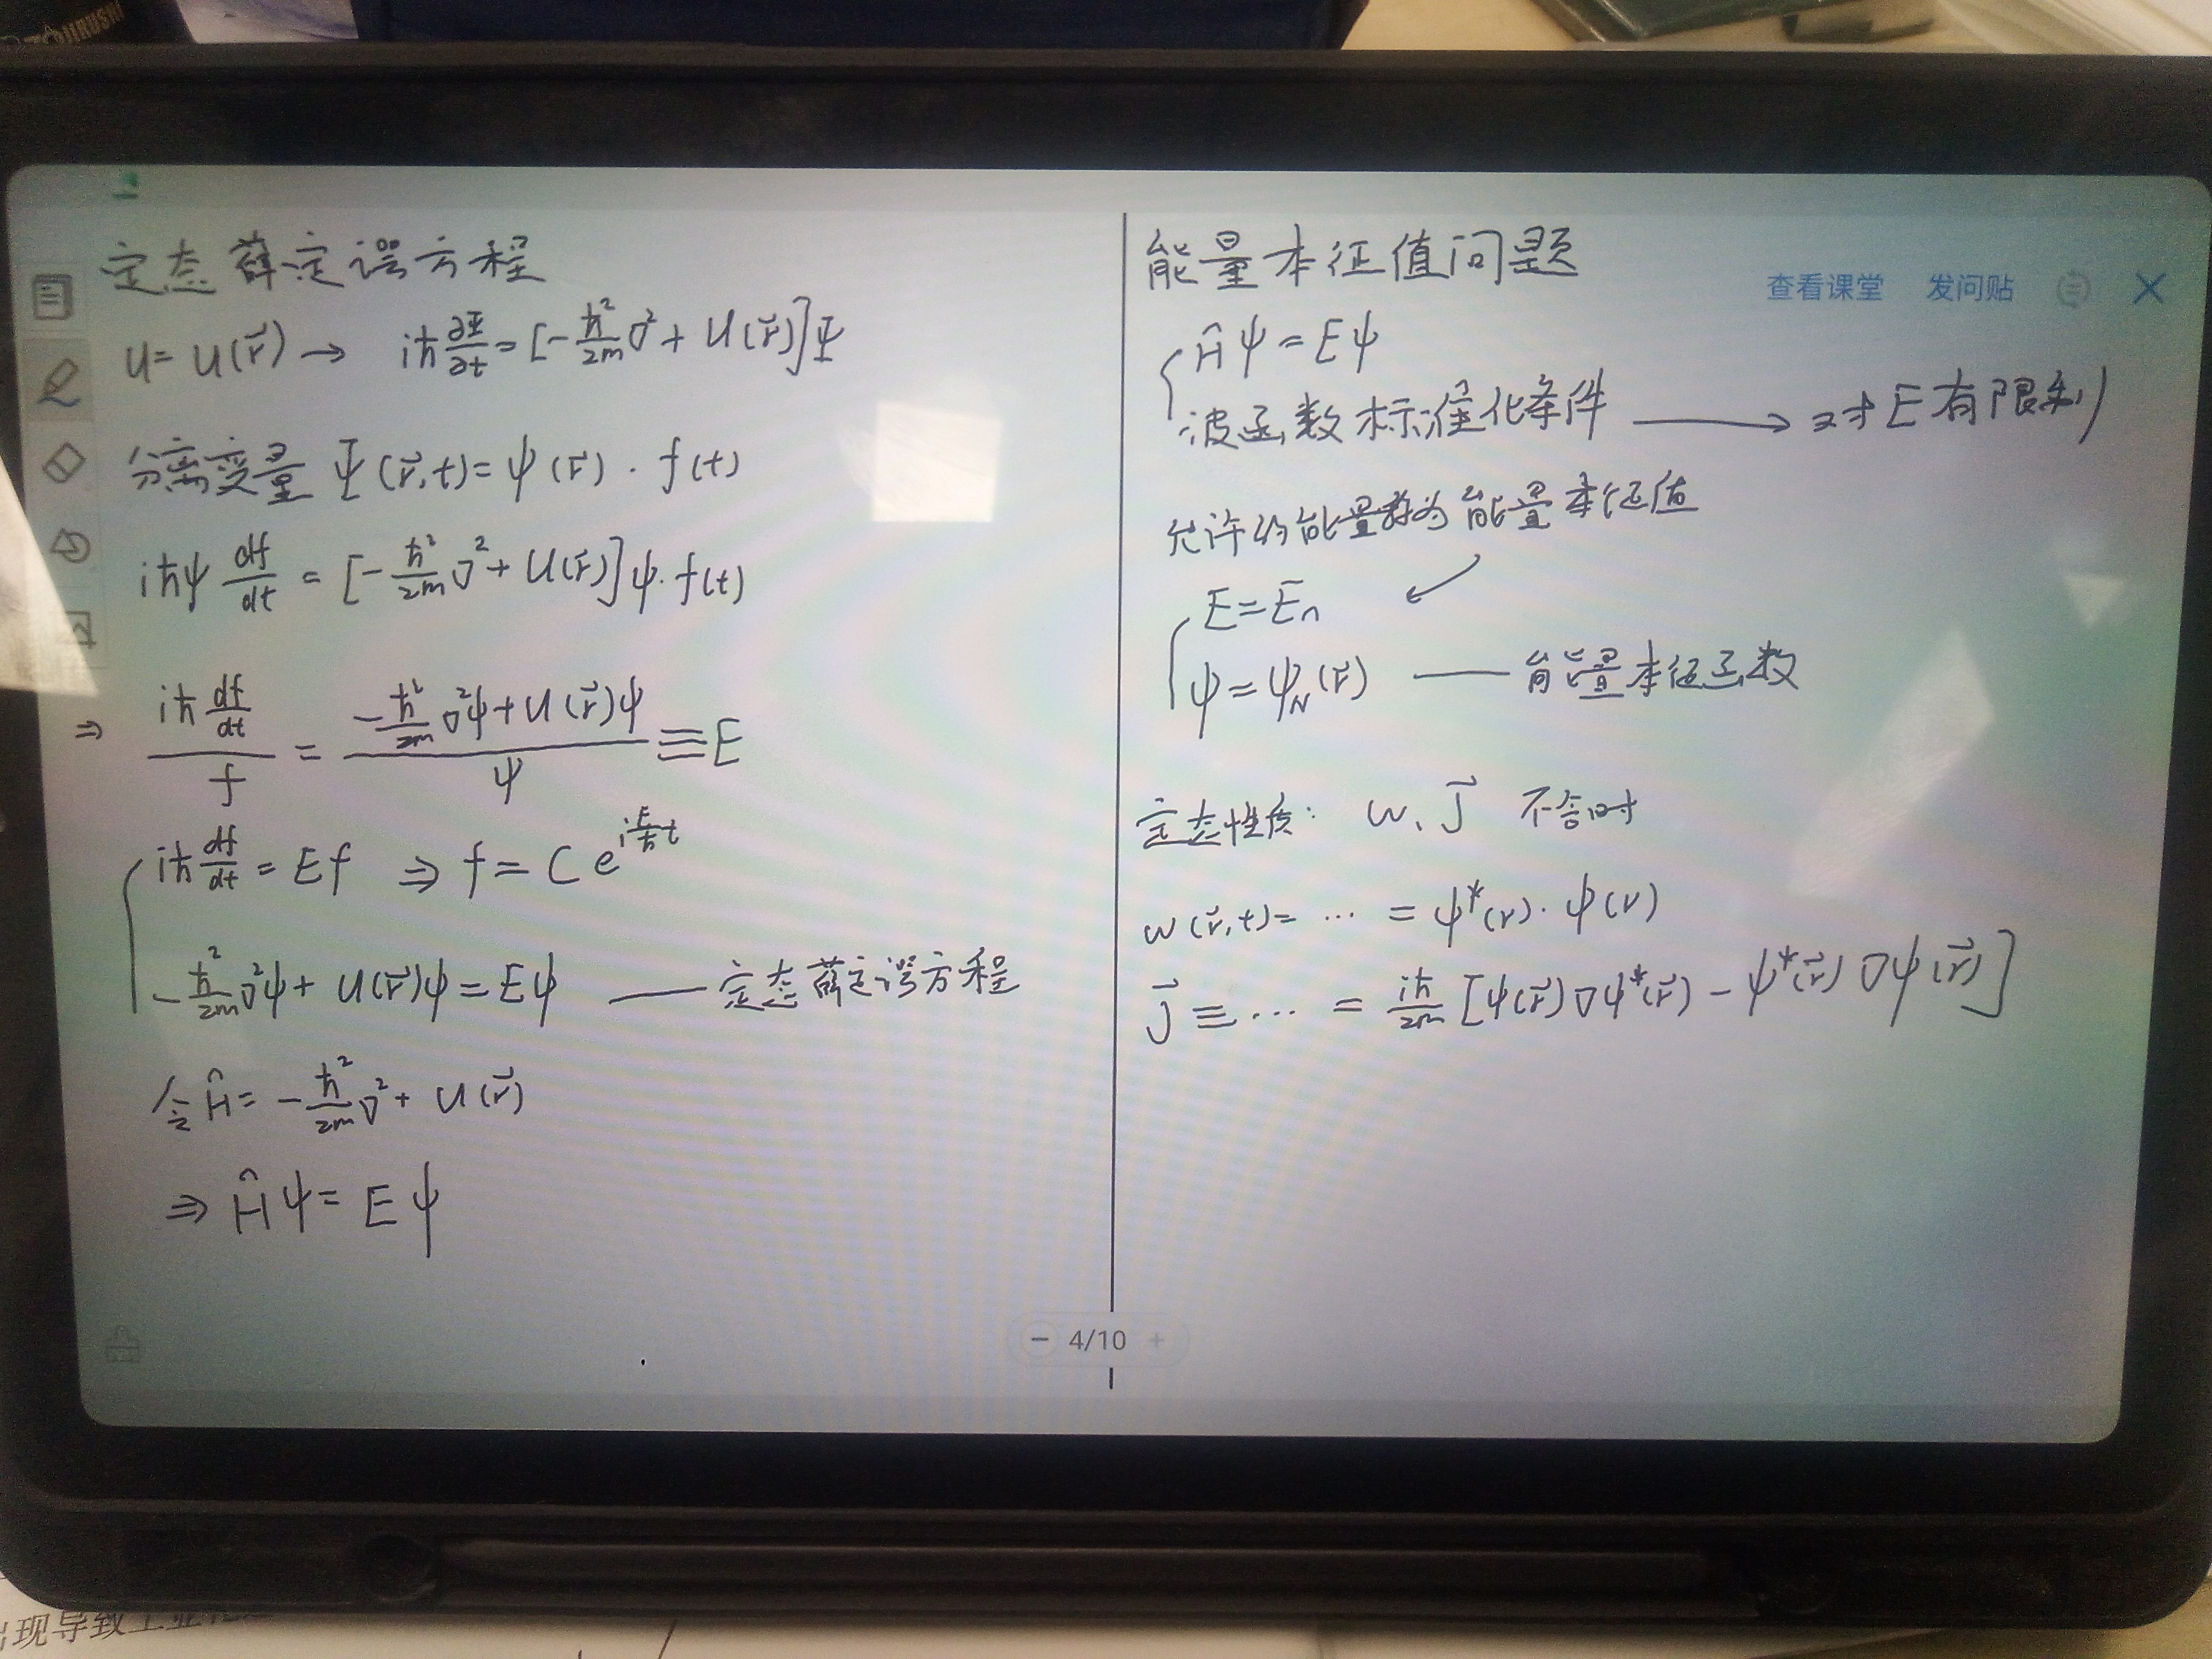 定态薛定谔方程
U = U(r⃗) → iħ ∂Ψ/∂t = [-ħ²/2m ∇² + U(r⃗)]Ψ
分离变量 Ψ(r⃗,t) = ψ(r⃗) · f(t)
iħψ df/dt = [-ħ²/2m ∇² + U(r⃗)]ψ·f(t)
⇒ iħ df/dt / f = (-ħ²/2m ∇²ψ + U(r⃗)ψ) / ψ ≡ E
iħ df/dt = Ef ⇒ f = C e^{i E/ħ t}
-ħ²/2m ∇²ψ + U(r⃗)ψ = Eψ —— 定态薛定谔方程
令 Ĥ = -ħ²/2m ∇² + U(r⃗)
⇒ Ĥψ = Eψ
能量本征值问题
查看课堂 发问贴
Ĥψ = Eψ
波函数标准化条件 → 对E有限制
允许的能量称为能量本征值
E = En
ψ = ψN(r⃗) —— 能量本征函数
定态性质: w、J⃗ 不含时
w(r⃗,t) = ··· = ψ*(r)·ψ(r)
J⃗ ≡ ··· = iħ/2m [ψ(r⃗)∇ψ*(r⃗) - ψ*(r⃗)∇ψ(r⃗)]
- 4/10 +
现导致工业